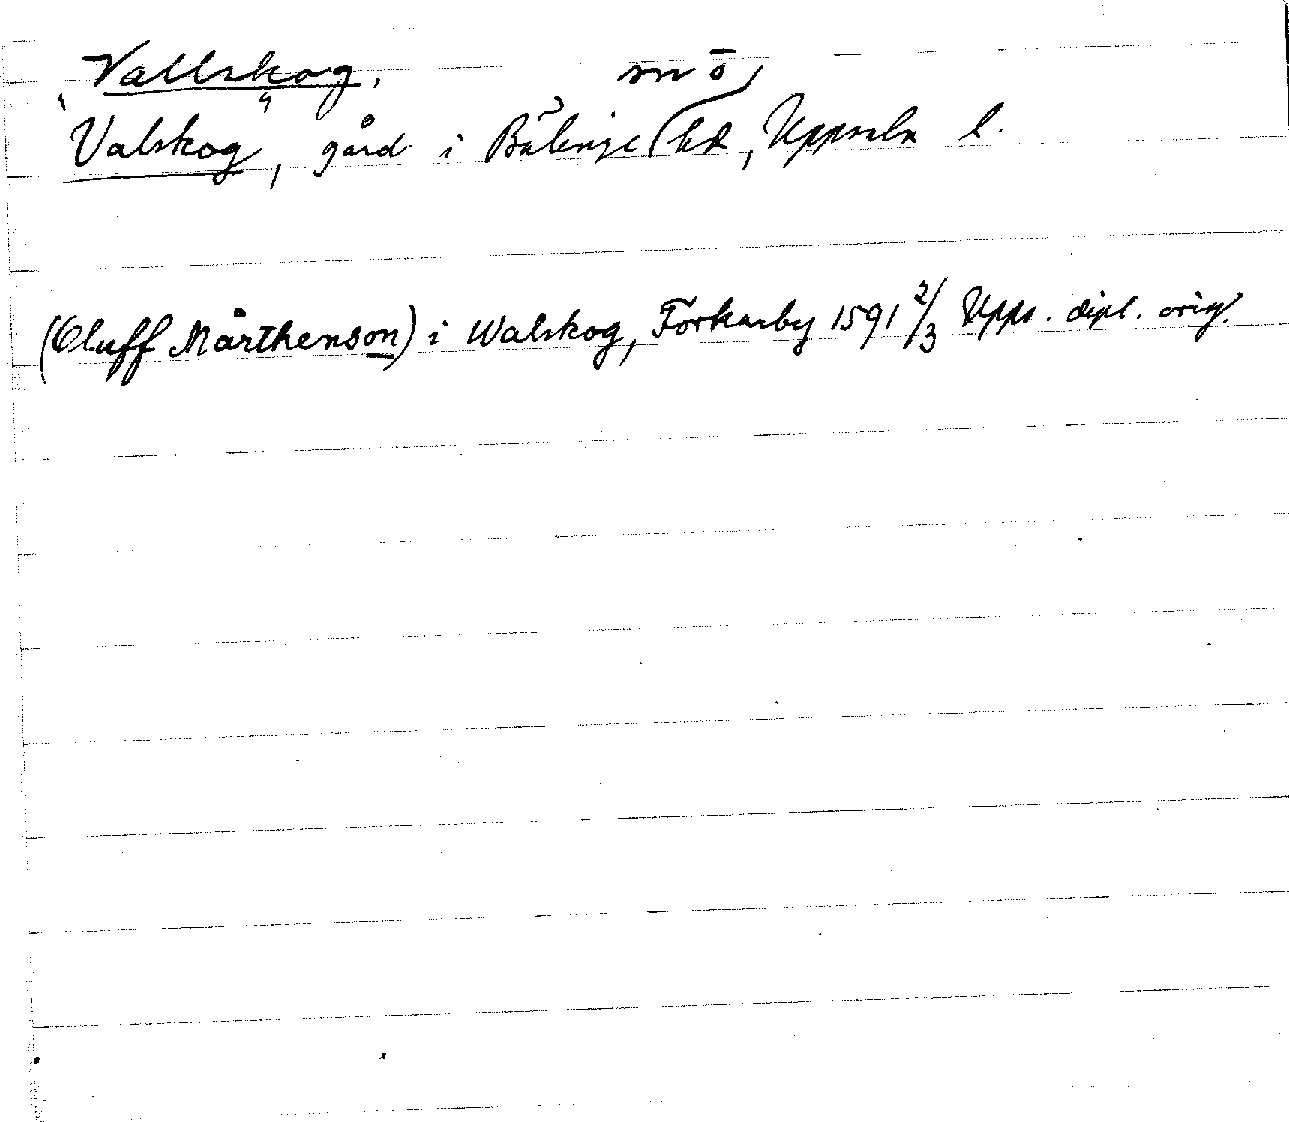 Vallskog.
"Valskog", gård i Bälinge sn o hd, Uppsala l.
(Oluff Mårthenson) i Walskog, Forkarby 1591 2/3 Upps. dipl. orig.